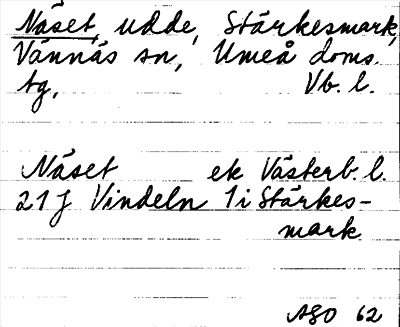 Näset, udde, Stärkesmark,
Vännäs sn, Umeå doms.
tg. Vb. l.
Näset ek Västerb. l.
21 J Vindeln 1 i Stärkes-
mark.
ASO 62